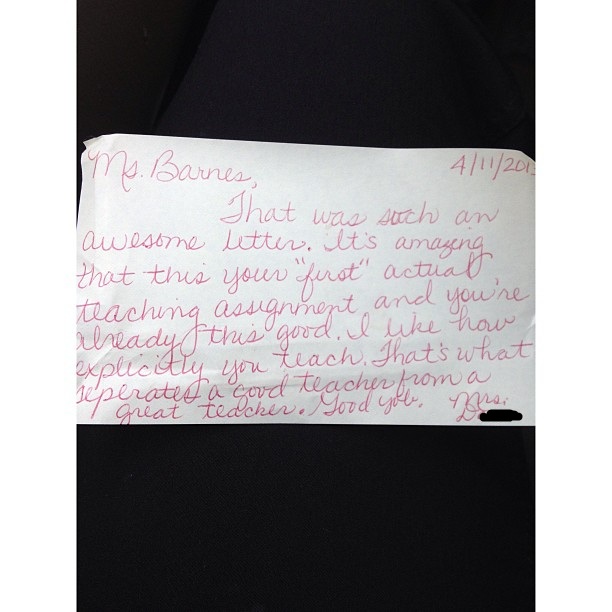 Ms. Barnes, 4/11/201
That was such an
awesome letter. It's amazing
that this your "first" actual
teaching assignment and you're
already this good. I like how
explicitly you teach. That's what
seperates a good teacher from a
great teacher. Good job. Mrs.
D